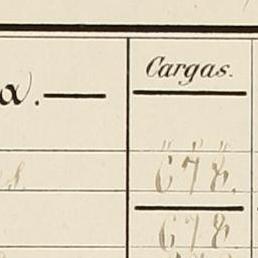 Cargas.
a.
" " "
678.
678